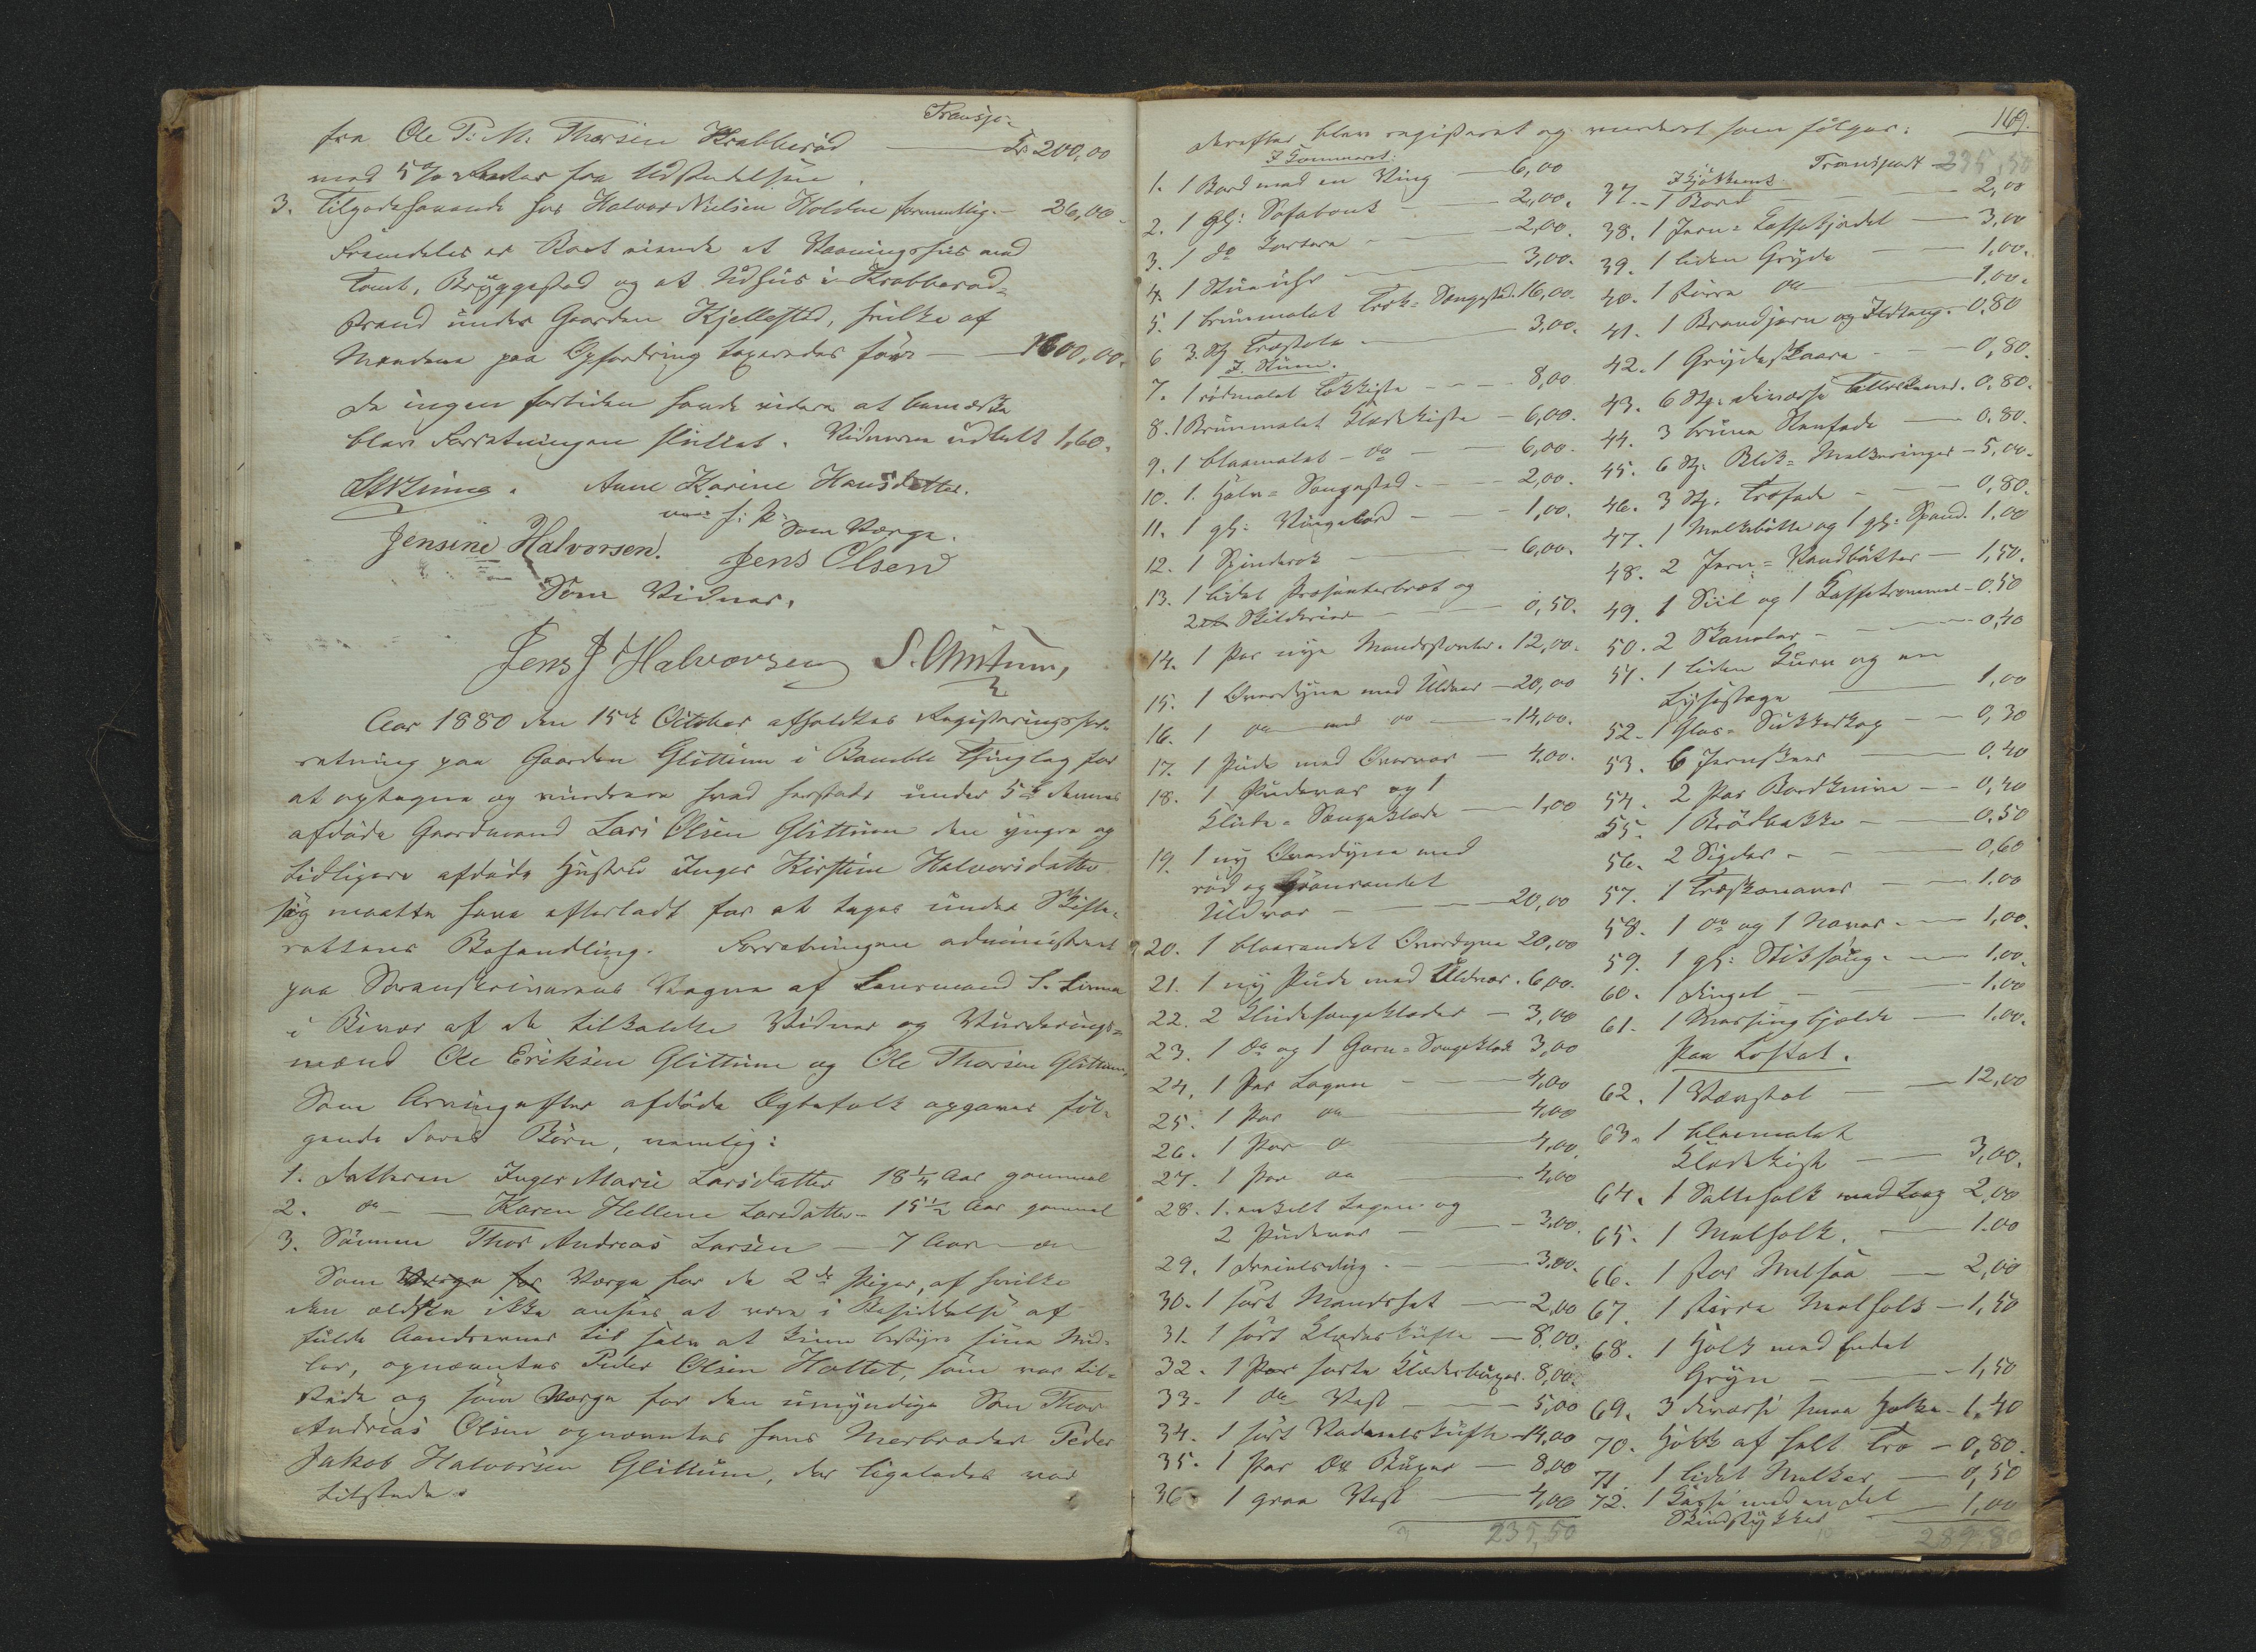 Transp:
fra Ole P: M: Thorsen Krabberød — Kr 200,00
med 5% Renter fra Udstedelsen
3. Tilgodehavende hos Halvor Nielsen Holden formentlig — 26,00
Fremdeles er Boet eiende et Vaaningshus med
Tomt, Bryggested og et Udhus i Krabberød-
strand under Gaarden Kjellestad, hvilke af
Mændene paa Opfordring taxeredes for — 1600,00.
Da ingen fortiden havde videre at bemærke
blev Forretningen sluttet. Vidnerne udbetalt 1,60.
Anne Karine Hansdatter.
m: f: P:
Som Værge.
Jensine Halvorsen. Jens Olsen
Som Vidner.
Jens J Halvorsen
Aar 1880 den 15de October afholdtes Registreringsfor-
retning paa Gaarden Glittum i Bamble Thinglag for
at optegne og vurdere hvad herstedes under 5te dennes
afdøde Gaardmand Lars Olsen Glittum den yngre og
tidligere afdøde Hustru Inger Kirstine Halvorsdatter
sig maatte have efterladt for at tages under Skifte-
rettens Behandling. Forretningen administreret
paa Sorenskriverens Vegne af Lensmand S. Linna
i Overvær af de tilkaldte Vidner og Vurderings-
mænd Ole Eriksen Glittum og Ole Thorsen Glittum,
Som Arvinger efter afdøde Egtefolk opgaves føl-
gende deres Børn, nemlig:
1. Datteren Inger Marie Larsdatter 18 1/4 Aar gammel
2. do — Karen Hellene Larsdatter - 15 1/2 Aar gammel
3. Sønnen Thor Andreas Larsen — 7 Aar do
Som Værge for Værge for de 2de Piger, af hvilke
den ældste ikke ansees at være i Besiddelse af
fulde Aandsevner til selv at kunne bestyre sine Mid-
ler, opnævntes Peder Olsen Hottet, som var til-
stede og som Værge for den umyndige Søn Thor
Andreas Olsen opnævntes hans Morbroder Peder
Jakob Halvorsen Glittum, der ligeledes var
tilstede.
169.
Derefter blev registreret og vurderet som følger:
I Kammeret.
1. 1 Bord med en Ving — 6,00
2. 1 gl: Sofabænk — 2,00.
3. 1 do — 2,00.
4. 1 Stueuhr — 3,00.
5. 1 brunmalet Træk-Sengested. 16,00.
6 3 Stk Træstole — 3,00.
I Stuen.
7. 1 rødmalet Lokkiste — 8,00
8. 1 Brunmalet Klædekiste — 6,00.
9. 1 blaamalet — do — 6,00.
10. 1 Halv-Sengested. — 2,00.
11. 1 gl: Vingebord — 1,00.
12. 1 Spinderok — 6,00.
13. 1 lidet Presenterbræt og
2de Skilderier — 0,50.
14. 1 Par nye Mandsstøvler. 12,00.
15. 1 Overdyne med Uldvar — 20,00
16. 1 do med do — 14,00.
17. 1 Pude med Overvar — 4,00.
18. 1 Pudevar og 1
Klude-Sengeklæde — 1,00
19. 1 ny Overdyne med
rød og grønrandet
Uldvar — 20,00
20. 1 blaarandet Overdyne 20,00
21. 1 ny Pude med Uldvar. 6,00.
22. 2 Kludesengeklæder — 3,00
23. 1 do og 1 Garn-Sengeklæde 3,00
24. 1 Par Lagen — 4,00
25. 1 Par do — 4,00
26. 1 Par do — 4,00
27. 1 Par do — 4,00
28. 1 enkelt Lagen og
2 Pudevar — 3,00.
29. 1 Dreielsdug — 3,00.
30. 1 sort Mandshat — 2,00
31. 1 sort Klædeskufte — 8,00.
32. 1 Par sorte Klædesbuxer. 8,00.
33. 1 do Vest — 5,00
34. 1 sort Vadmelskufte — 14,00
35. 1 Par do Buxer — 8,00
36. 1 graa Vest — 4,00
235,50
Transport 235,50
I Kjøkkenet
37. 1 Bord — 2,00
38. 1 Jern-Kaffekjedel — 3,00
39. 1 liden Gryde — 1,00.
40. 1 større do — 1,00.
41. 1 Brandjern og Ildtang. 0,80
42. 1 Grydeskaare — 0,80.
43. 6 Stk. diverse Tallerkener. 0,80.
44. 3 brune Stenfade — 0,80.
45. 6 Stk. Blik-Melkeringer — 5,00.
46. 3 Stk. Træfade — 0,80.
47. 1 Melkebøtte og 1 gl: Spand. 1,00
48. 2 Jern-Vandbøtter — 1,50.
49. 1 Siil og 1 Kaffetrommel — 0,50
50. 2 Skamler — 0,40
51. 1 liden Kurv og en
Lysestage — 1,00
52. 1 Glas-Sukkerkop — 0,30
53. 6 Jernskeer — 0,40
54. 2 Par Bordknive — 0,40
55. 1 Brødbakke — 0,50
56. 2 Sigder — 0,60
57. 1 Træskonaver — 1,00
58. 1 do og 1 Naver — 1,00.
59. 1 gl: Stiksaug — 1,00.
60. 1 Dingel — 1,00
61. 1 Messingbjelde — 1,00.
Paa Loftet.
62. 1 Vævstol — 12,00
63. 1 blaamalet
Klædekiste — 3,00.
64. 1 Saltholk med Laag 2,00
65. 1 Melholk. — 1,00
66. 1 stor Melsaa — 2,00
67. 1 større Melholk — 1,50
68. 1 Holk med endel
Gryn — 1,50
69. 3 diverse smaa Holke — 1,40
70. Holk af helt Træ — 0,80.
71. 1 lidet Melkar — 0,50
72. 1 Kasse med en del
Skindstykker — 1,00
289,80